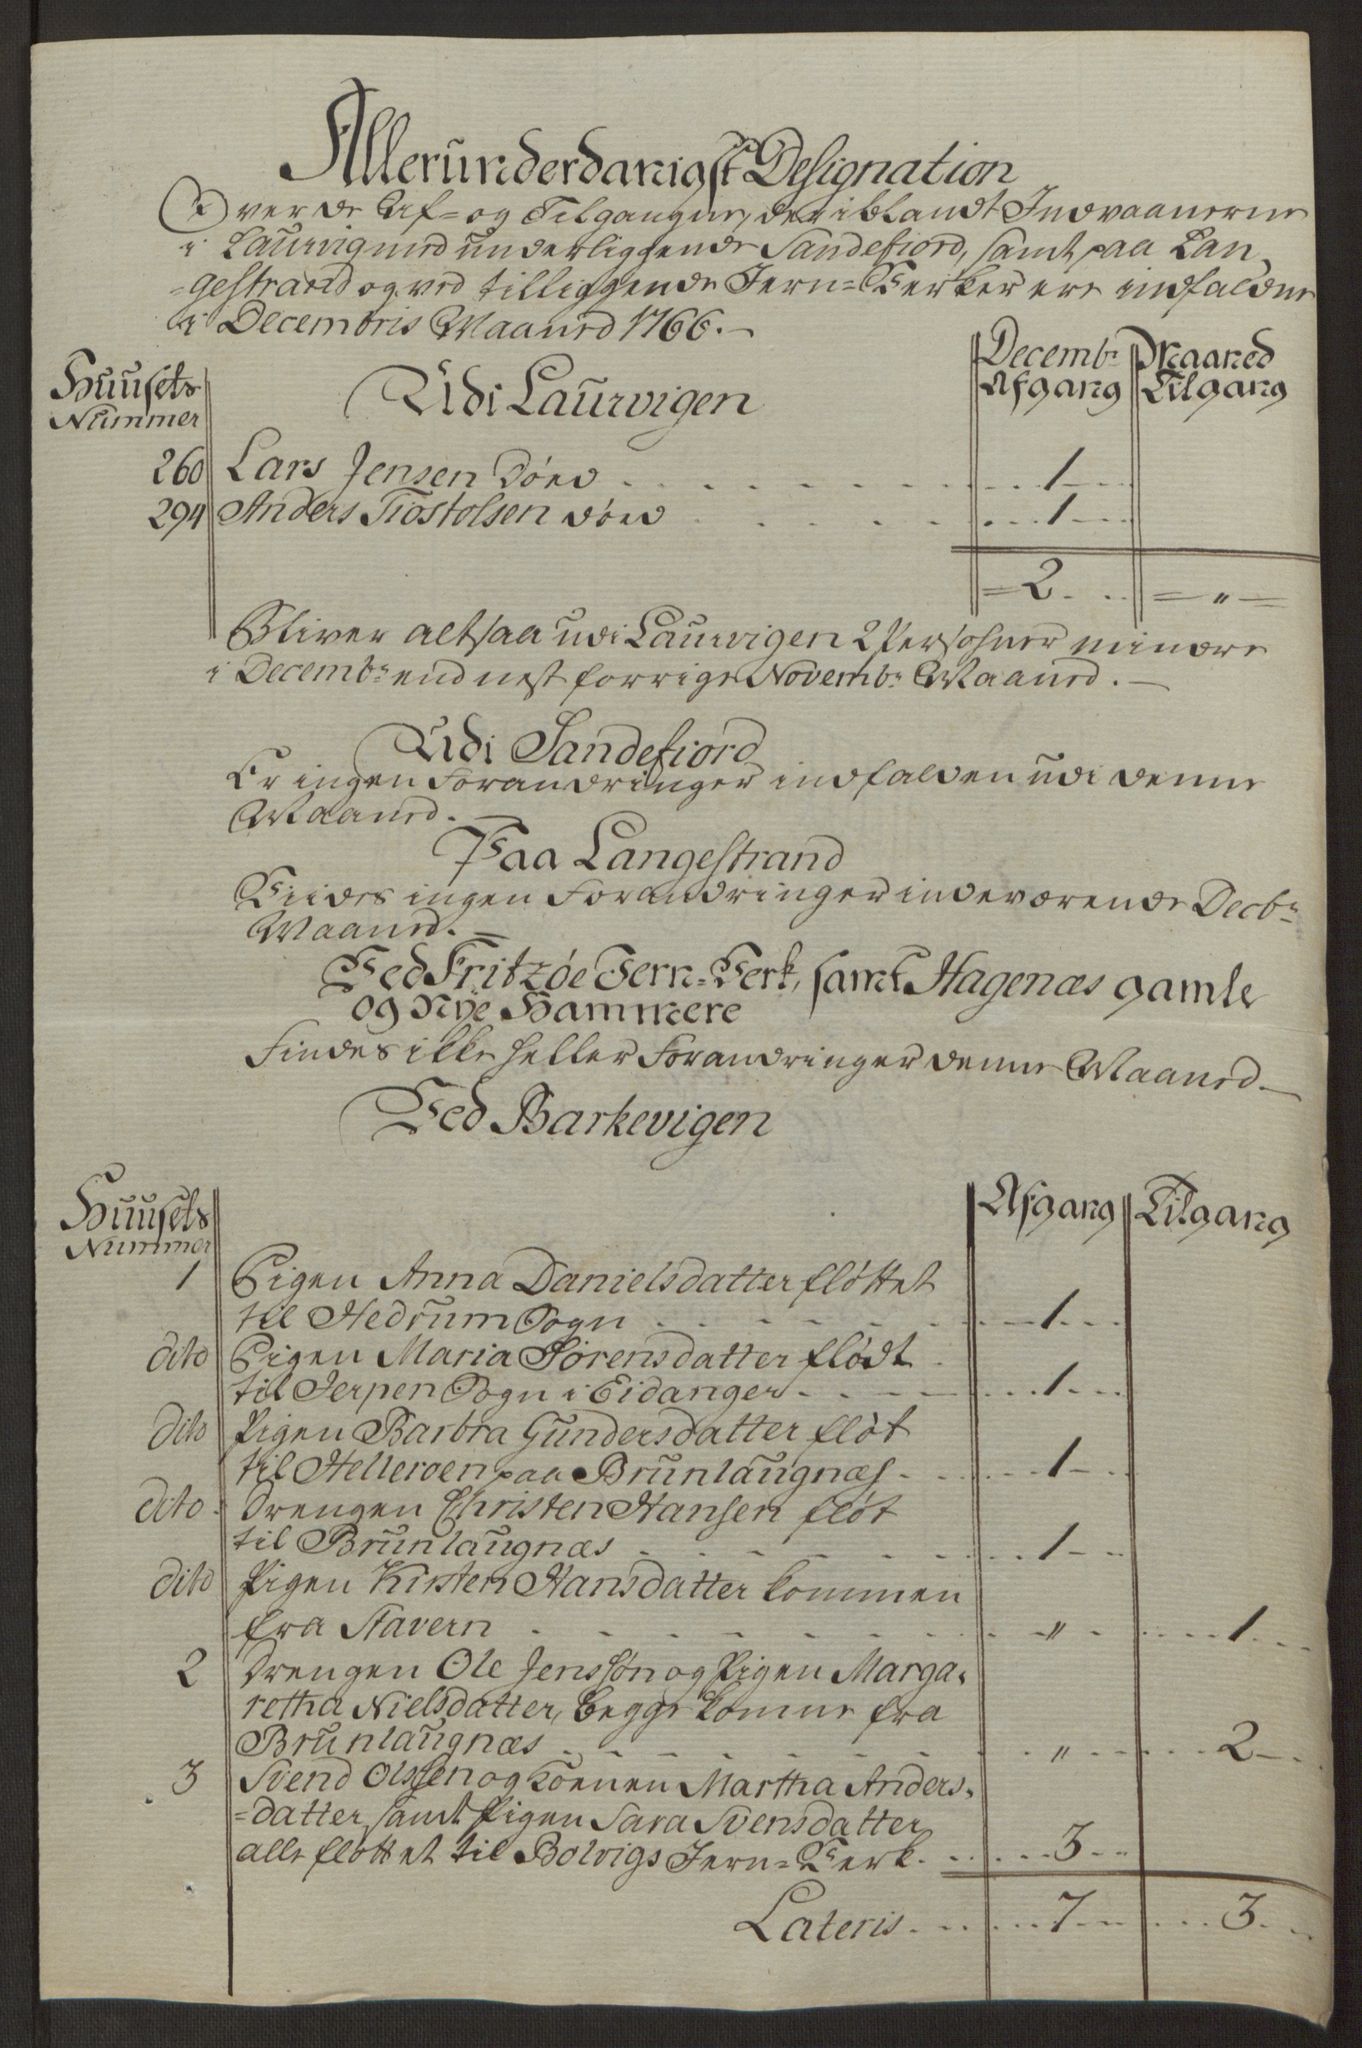 Allerunderdanigst Designation
Over de Af- og Tilgange, der iblandt Indvaanerne
i Laurvig med underliggende Sandefiord, samt paa Lan-
-gestrand og ved tilliggende Jern-Verker ere indfaldne
i Decembris Maaned 1766.
Huusets Nummer
Udi Laurvigen
Decembr Maaned
Afgang Tilgang
260 Lars Jensen død . . . 1
294 Anders Tiostolsen død . . . 1
2 "
Bliver altsaa udi Laurvigen 2 Persohner mindre
i Decembr end nest forrige Novembr Maaned.
Udi Sandefiord
Er ingen Forandringer indfalden udi denne
Maaned.
Paa Langestrand
Fiides ingen Forandringer indeværende Decbr
Maaned.
Ved Fritzøe Jern-Verk, samt Hagenæs gamle
og Nye Hammere
Findes ikke heller Forandringer denne Maaned.
Ved Barkevigen
Huusets Nummer
Afgang Tilgang
1 Pigen Anna Danielsdatter fløttet
til Hedrum Sogn . . . 1
dito Pigen Maria Sørensdatter flødt
til Jerpen Sogn i Eidanger . . . 1
dito Pigen Barbra Gundersdatter fløt
til Helleroen paa Brunlaugnæs . . . 1
dito Drengen Christen Hansen fløt
til Brunlaugnæs . . . 1
dito Pigen Kirsten Hansdatter kommen
fra Stavern . . . " 1
2 Drengen Ole Jenssøn og Pigen Marga-
retha Nielsdatter, begge komne fra
Brunlaugnæs . . . " 2
3 Svend Olssen og Konen Martha Anders-
-datter, samt Pigen Sara Svensdatter
alle fløttet til Bolvigs Jern-Verk . . . 3
Lateris . . . 7 3